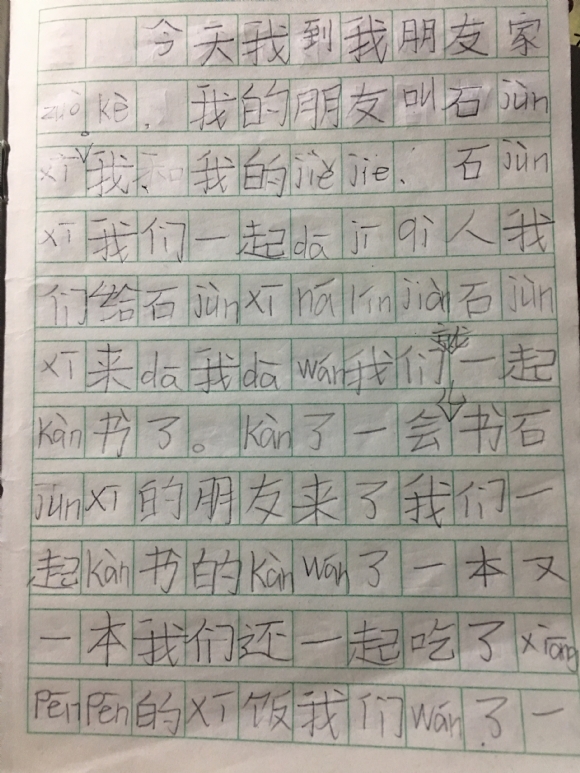 今天我到我朋友家
zuò kè，我的朋友叫石jùn
xī。我和我的jiě jie、石jùn
xī我们一起dā jī qì人我
们给石jùn xī ná lín jiàn石jùn
xī来dā我dā wán我们就一起
kàn书了。kàn了一会儿书石
jùn xī的朋友来了我们一
起kàn书的kàn wán了一本又
一本我们还一起吃了xiāng
Pēn Pēn的xī饭我们wán了一